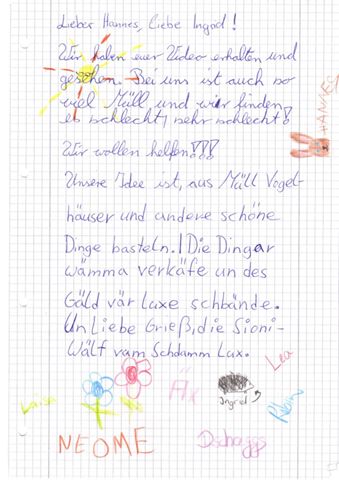 Lieber Hannes, Liebe Ingrid!
Wir haben euer Video erhalten und
gesehen. Bei uns ist auch so
viel Müll und wir finden
es schlecht, sehr schlecht!
HANNES
Wir wollen helfen!!!
Unsere Idee ist, aus Müll Vogel-
häuser und andere schöne
Dinge basteln. Die Dingar
wämma verkäfe un des
Gäld vär Luxe schbände.
Un Liebe Grieß, die Sioni-
Wälf vam Schdamm Lux.
Lea
Luisa
Ingrid
NEOME